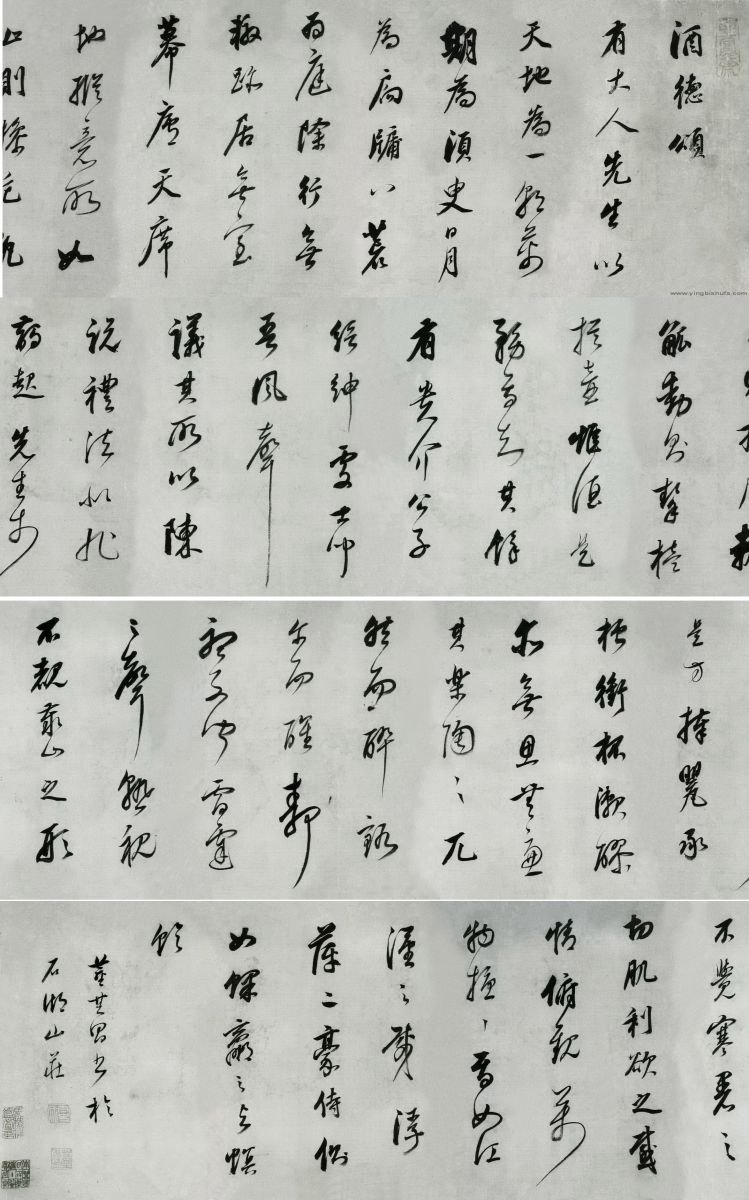 酒德頌
有大人先生以
天地為一朝萬
期為須臾日月
為扃牖八荒
為庭除行無
轍跡居無室
幕廬天席
地縱意所如
止則操卮執
www.yingbishufa.com
觚動則挈榼
提壺惟酒是
務焉知其餘
有貴介公子
縉紳處士聞
吾風聲
議其所以陳
說禮法是非
起先生於
是方捧罌承
槽銜杯漱醪
無思無慮
其樂陶〻兀
然而醉豁
爾而醒靜
聽不聞雷霆
之聲熟視
不覩泰山之形
不覺寒暑之
切肌利欲之感
情俯觀萬
物擾〻焉如江
漢之載浮
萍二豪侍側
如蜾蠃之與螟
蛉
董其昌書於
石湖山莊